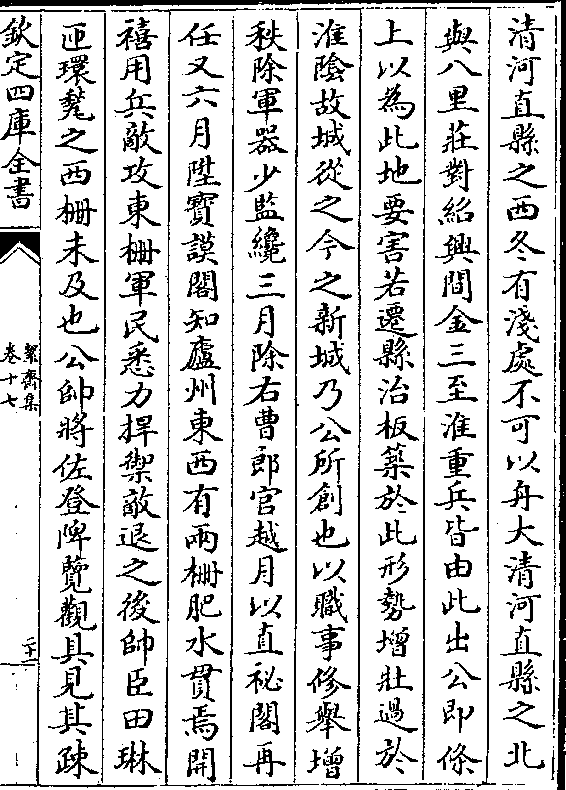 清河直縣之西冬有淺處不可以舟大清河直縣之北
與八里莊對紹興間金三至淮重兵皆由此出公即條
上以為此地要害若遷縣治板築於此形勢增壯過於
淮陰故城從之今之新城乃公所創也以職事修舉增
秩除軍器少監纔三月除右曹郎官越月以直祕閣再
任又六月陞寶謨閣知廬州東西有兩柵肥水貫焉開
禧用兵敵攻東柵軍民悉力捍禦敵退之後帥臣田琳
迊環甃之西柵未及也公帥將佐登陴覽觀具見其疎
欽定四庫全書
絜齋集
卷十七
二十一